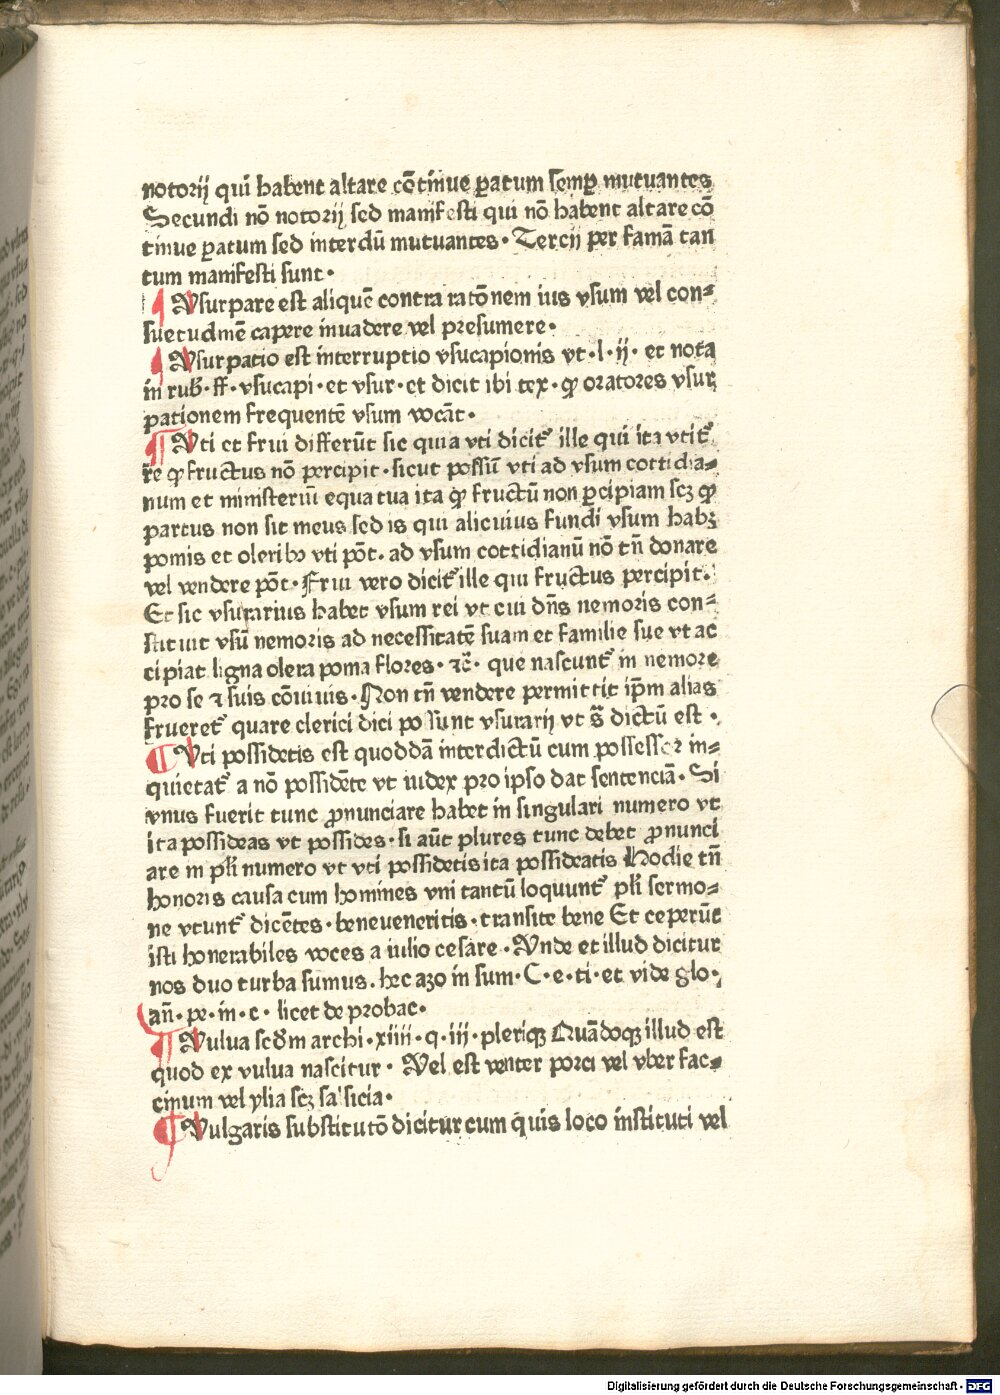 notorij qui habent altare cōtinue ꝑatum semꝑ mutuantes
Secundi nō notorij sed manifesti qui nō habent altare cō
tinue ꝑatum sed interdū mutuantes· Tercij per famā tan
tum manifesti sunt·
¶ Vsurpare est aliquē contra ratōnem ius vsum vel con⸗
suetudinē capere inuadere vel presumere·
¶ Vsurpatio est interruptio vsucapionis vt·l·ij· et nota
in rub̄·ff·vsucapi·et vsur·et dicit ibi tex·ꝙ oratores vsur
pationem frequentē vsum vocāt·
¶ Vti et frui differūt sic quia vti dicit᷑ ille qui ita vtit᷑
re ꝙ fructus nō percipit·sicut possū vti ad vsum cottidia⸗
num et ministeriū equa tua ita ꝙ fructū non ꝑcipiam scꝫ ꝙ
partus non sit meus sed is qui alicuius fundi vsum habꝫ
pomis et olerib᷒ vti pōt·ad vsum cottidianū nō tn̄ donare
vel vendere pōt·Frui vero dicit᷑ ille qui fructus percipit·
Et sic vsurarius habet vsum rei vt cui dn̄s nemoris con⸗
stituit vsū nemoris ad necessitatē suam et familie sue vt ac
cipiat ligna olera poma flores·⁊c̄· que nascunt᷑ in nemore
pro se ⁊ suis cōuiuis·Non tn̄ vendere permittit ip̄m alias
frueret᷑ quare clerici dici possunt vsurarij vt s̄ dictū est·
¶ Vti possidetis est quoddā interdictū cum possessor in⸗
quietat᷑ a nō possidēte vt iudex pro ipso dat sentenciā·Si
vnus fuerit tunc ꝓnunciare habet in singulari numero vt
ita possideas vt possides·si aūt plures tunc debet ꝓnunci
are in pl̄i numero vt vti possidetis ita possideatis Hodie tn̄
honoris causa cum homines vni tantū loquunt᷑ pl̄i sermo⸗
ne vtunt᷑ dicētes·beneueneritis·transite bene Et ceperūt
isti honerabiles voces a iulio cesare·Vnde et illud dicitur
nos duo turba sumus. hec azo in sum·C·e·ti·et vide glo·
an̄·pe·in·c·licet de probac·
¶ Vulua scd̄m archi·xiiii·q·iii·pleriqꝫ Quādoqꝫ illud est
quod ex vulua nascitur·Vel est venter porci vel vber fac⸗
cinium vel ylia scꝫ salsicia·
¶ Vulgaris substitutō dicitur cum quis loco instituti vel
Digitalisierung gefördert durch die Deutsche Forschungsgemeinschaft - DFG